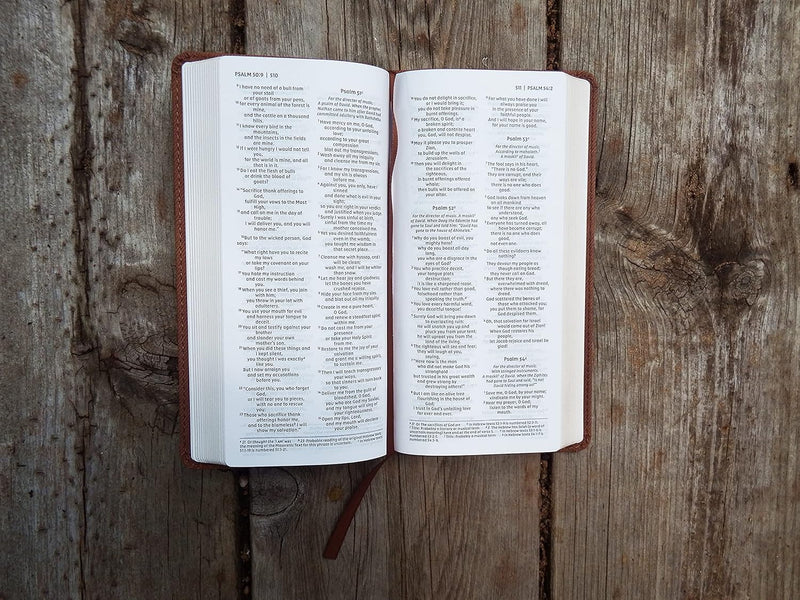 PSALM 50:9 | 510
⁹ I have no need of a bull from
your stall
or of goats from your pens,
¹⁰ for every animal of the forest is
mine,
and the cattle on a thousand
hills.
¹¹ I know every bird in the
mountains,
and the insects in the fields
are mine.
¹² If I were hungry I would not tell
you,
for the world is mine, and all
that is in it.
¹³ Do I eat the flesh of bulls
or drink the blood of
goats?
¹⁴ "Sacrifice thank offerings to
God,
fulfill your vows to the Most
High,
¹⁵ and call on me in the day of
trouble;
I will deliver you, and you will
honor me."
¹⁶ But to the wicked person, God
says:
"What right have you to recite
my laws
or take my covenant on your
lips?
¹⁷ You hate my instruction
and cast my words behind
you.
¹⁸ When you see a thief, you join
with him;
you throw in your lot with
adulterers.
¹⁹ You use your mouth for evil
and harness your tongue to
deceit.
²⁰ You sit and testify against your
brother
and slander your own
mother's son.
²¹ When you did these things and
I kept silent,
you thought I was exactly
like you.
But I now arraign you
and set my accusations
before you.
²² "Consider this, you who forget
God,
or I will tear you to pieces,
with no one to rescue
you:
²³ Those who sacrifice thank
offerings honor me,
and to the blameless I will
show my salvation."
Psalm 51
For the director of music.
A psalm of David. When the prophet
Nathan came to him after David had
committed adultery with Bathsheba.
¹ Have mercy on me, O God,
according to your unfailing
love;
according to your great
compassion
blot out my transgressions.
² Wash away all my iniquity
and cleanse me from my sin.
³ For I know my transgressions,
and my sin is always
before me.
⁴ Against you, you only, have I
sinned
and done what is evil in your
sight;
so you are right in your verdict
and justified when you judge.
⁵ Surely I was sinful at birth,
sinful from the time my
mother conceived me.
⁶ Yet you desired faithfulness
even in the womb;
you taught me wisdom in
that secret place.
⁷ Cleanse me with hyssop, and I
will be clean;
wash me, and I will be whiter
than snow.
⁸ Let me hear joy and gladness;
let the bones you have
crushed rejoice.
⁹ Hide your face from my sins
and blot out all my iniquity.
¹⁰ Create in me a pure heart,
O God,
and renew a steadfast spirit
within me.
¹¹ Do not cast me from your
presence
or take your Holy Spirit
from me.
¹² Restore to me the joy of your
salvation
and grant me a willing spirit,
to sustain me.
¹³ Then I will teach transgressors
your ways,
so that sinners will turn back
to you.
¹⁴ Deliver me from the guilt of
bloodshed, O God,
you who are God my Savior,
and my tongue will sing of
your righteousness.
¹⁵ Open my lips, Lord,
and my mouth will declare
your praise.
511 | PSALM 54:2
¹⁶ You do not delight in sacrifice,
or I would bring it;
you do not take pleasure in
burnt offerings.
¹⁷ My sacrifice, O God, is a
broken spirit;
a broken and contrite heart
you, God, will not despise.
¹⁸ May it please you to prosper
Zion,
to build up the walls of
Jerusalem.
¹⁹ Then you will delight in
the sacrifices of the
righteous,
in burnt offerings offered
whole;
then bulls will be offered on
your altar.
Psalm 52
For the director of music. A maskil
of David. When Doeg the Edomite had
gone to Saul and told him: "David has
gone to the house of Ahimelek."
¹ Why do you boast of evil, you
mighty hero?
Why do you boast all day
long,
you who are a disgrace in the
eyes of God?
² You who practice deceit,
your tongue plots
destruction;
it is like a sharpened razor.
³ You love evil rather than good,
falsehood rather than
speaking the truth.
⁴ You love every harmful word,
you deceitful tongue!
⁵ Surely God will bring you down
to everlasting ruin:
He will snatch you up and
pluck you from your tent;
he will uproot you from the
land of the living.
⁶ The righteous will see and fear;
they will laugh at you,
saying,
⁷ "Here now is the man
who did not make God his
stronghold
but trusted in his great wealth
and grew strong by
destroying others!"
⁸ But I am like an olive tree
flourishing in the house of
God;
I trust in God's unfailing love
for ever and ever.
⁹ For what you have done I will
always praise you
in the presence of your
faithful people.
And I will hope in your name,
for your name is good.
Psalm 53
For the director of music.
According to mahalath.
A maskil of David.
¹ The fool says in his heart,
"There is no God."
They are corrupt, and their
ways are vile;
there is no one who does
good.
² God looks down from heaven
on all mankind
to see if there are any who
understand,
any who seek God.
³ Everyone has turned away, all
have become corrupt;
there is no one who does
good,
not even one.
⁴ Do all these evildoers know
nothing?
They devour my people as
though eating bread;
they never call on God.
⁵ But there they are,
overwhelmed with dread,
where there was nothing to
dread.
God scattered the bones of
those who attacked you;
you put them to shame, for
God despised them.
⁶ Oh, that salvation for Israel
would come out of Zion!
When God restores his
people,
let Jacob rejoice and Israel be
glad!
Psalm 54
For the director of music.
With stringed instruments.
A maskil of David. When the Ziphites
had gone to Saul and said, "Is not
David hiding among us?"
¹ Save me, O God, by your name;
vindicate me by your might.
² Hear my prayer, O God;
listen to the words of my
mouth.